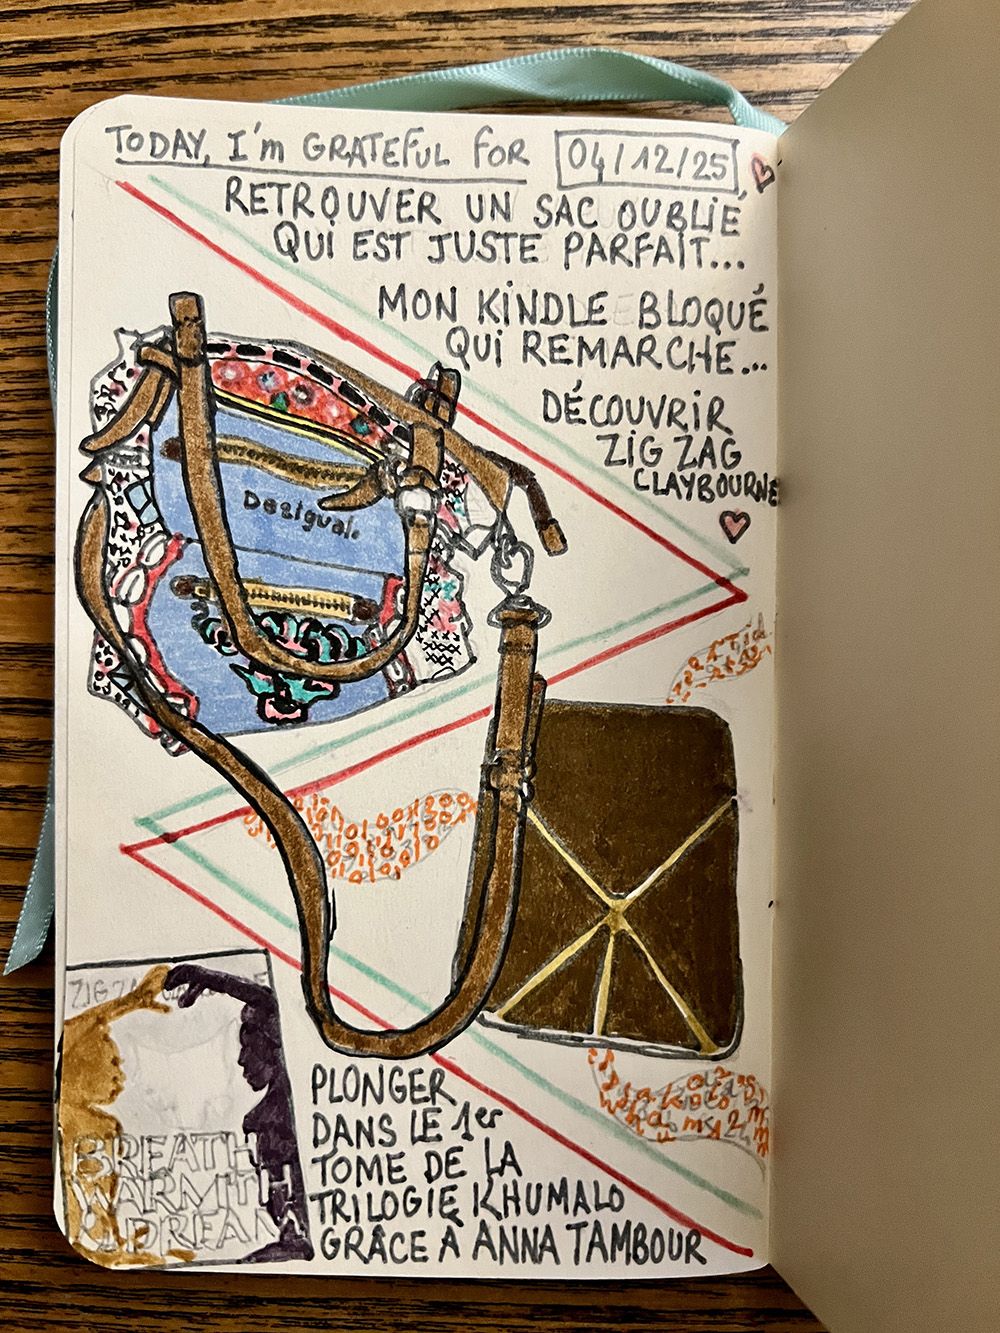 TODAY, I'm GRATEFUL FOR 04/12/25
RETROUVER UN SAC OUBLIÉ,
QUI EST JUSTE PARFAIT...
MON KINDLE BLOQUÉ
QUI REMARCHE...
DÉCOUVRIR
ZIG ZAG
CLAYBOURNE
Desigual.
ZIG ZAG
BREATH
WARMTH
& DREAM
PLONGER
DANS LE 1er
TOME DE LA
TRILOGIE KHUMALO
GRÂCE À ANNA TAMBOUR